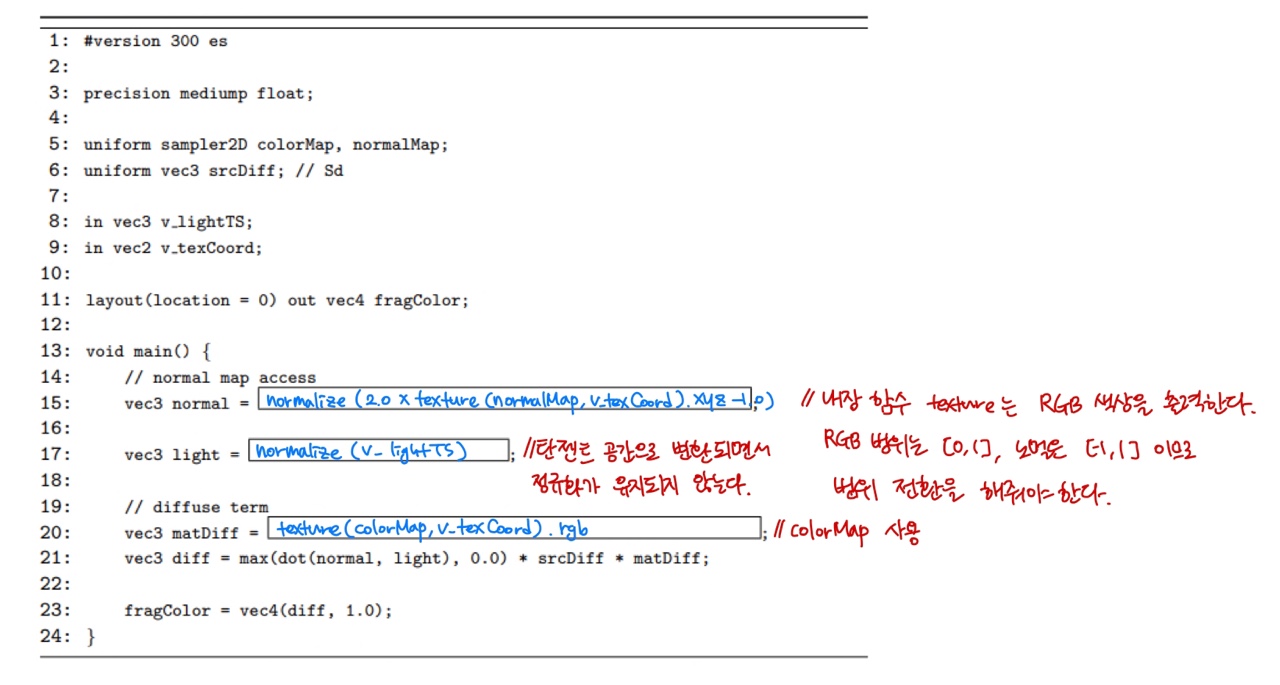 1: #version 300 es
2:
3: precision mediump float;
4:
5: uniform sampler2D colorMap, normalMap;
6: uniform vec3 srcDiff; // Sd
7:
8: in vec3 v_lightTS;
9: in vec2 v_texCoord;
10:
11: layout(location = 0) out vec4 fragColor;
12:
13: void main() {
14: // normal map access
15: vec3 normal = normalize (2.0 × texture (normalMap, v_texCoord).xyz -1.0) // 내장 함수 texture는 RGB 색상을 출력한다.
16:
RGB 범위는 [0,1], 노멀은 [-1,1] 이므로
17: vec3 light = normalize (v_lightTS) ; //탄젠트 공간으로 변환되면서
18:
정규화가 유지되지 않는다. 범위 전환을 해줘야한다.
19: // diffuse term
20: vec3 matDiff = texture(colorMap, v_texCoord).rgb ; // colorMap 사용
21: vec3 diff = max(dot(normal, light), 0.0) * srcDiff * matDiff;
22:
23: fragColor = vec4(diff, 1.0);
24: }